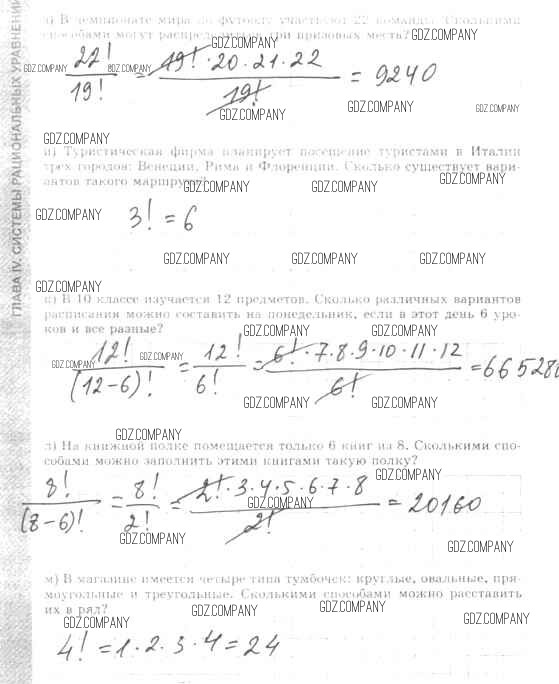 з) В чемпионате мира по футболу участвуют 22 команды. Сколькими
способами могут распределиться три призовых места?
GDZ.COMPANY
GDZ.COMPANY
22!/19! = 19!·20·21·22/19! = 9240
GDZ.COMPANY GDZ.COMPANY
GDZ.COMPANY GDZ.COMPANY GDZ.COMPANY
GDZ.COMPANY
и) Туристическая фирма планирует посещение туристами в Италии
трех городов: Венеции, Рима и Флоренции. Сколько существует вари-
антов такого маршрута?
GDZ.COMPANY GDZ.COMPANY GDZ.COMPANY
GDZ.COMPANY
3! = 6
GDZ.COMPANY GDZ.COMPANY GDZ.COMPANY
GDZ.COMPANY
к) В 10 классе изучается 12 предметов. Сколько различных вариантов
расписания можно составить на понедельник, если в этот день 6 уро-
ков и все разные?
GDZ.COMPANY GDZ.COMPANY
12!/(12-6)! = 12!/6! = 6!·7·8·9·10·11·12/6! = 665280
GDZ.COMPANY GDZ.COMPANY
GDZ.COMPANY GDZ.COMPANY
GDZ.COMPANY
л) На книжной полке помещается только 6 книг из 8. Сколькими спо-
собами можно заполнить этими книгами такую полку?
GDZ.COMPANY
8!/(8-6)! = 8!/2! = 2!·3·4·5·6·7·8/2! = 20160
GDZ.COMPANY
GDZ.COMPANY
GDZ.COMPANY
м) В магазине имеется четыре типа тумбочек: круглые, овальные, пря-
моугольные и треугольные. Сколькими способами можно расставить
их в ряд?
GDZ.COMPANY GDZ.COMPANY
GDZ.COMPANY GDZ.COMPANY
4! = 1·2·3·4 = 24
ГЛАВА IV. СИСТЕМЫ РАЦИОНАЛЬНЫХ УРАВНЕНИЙ